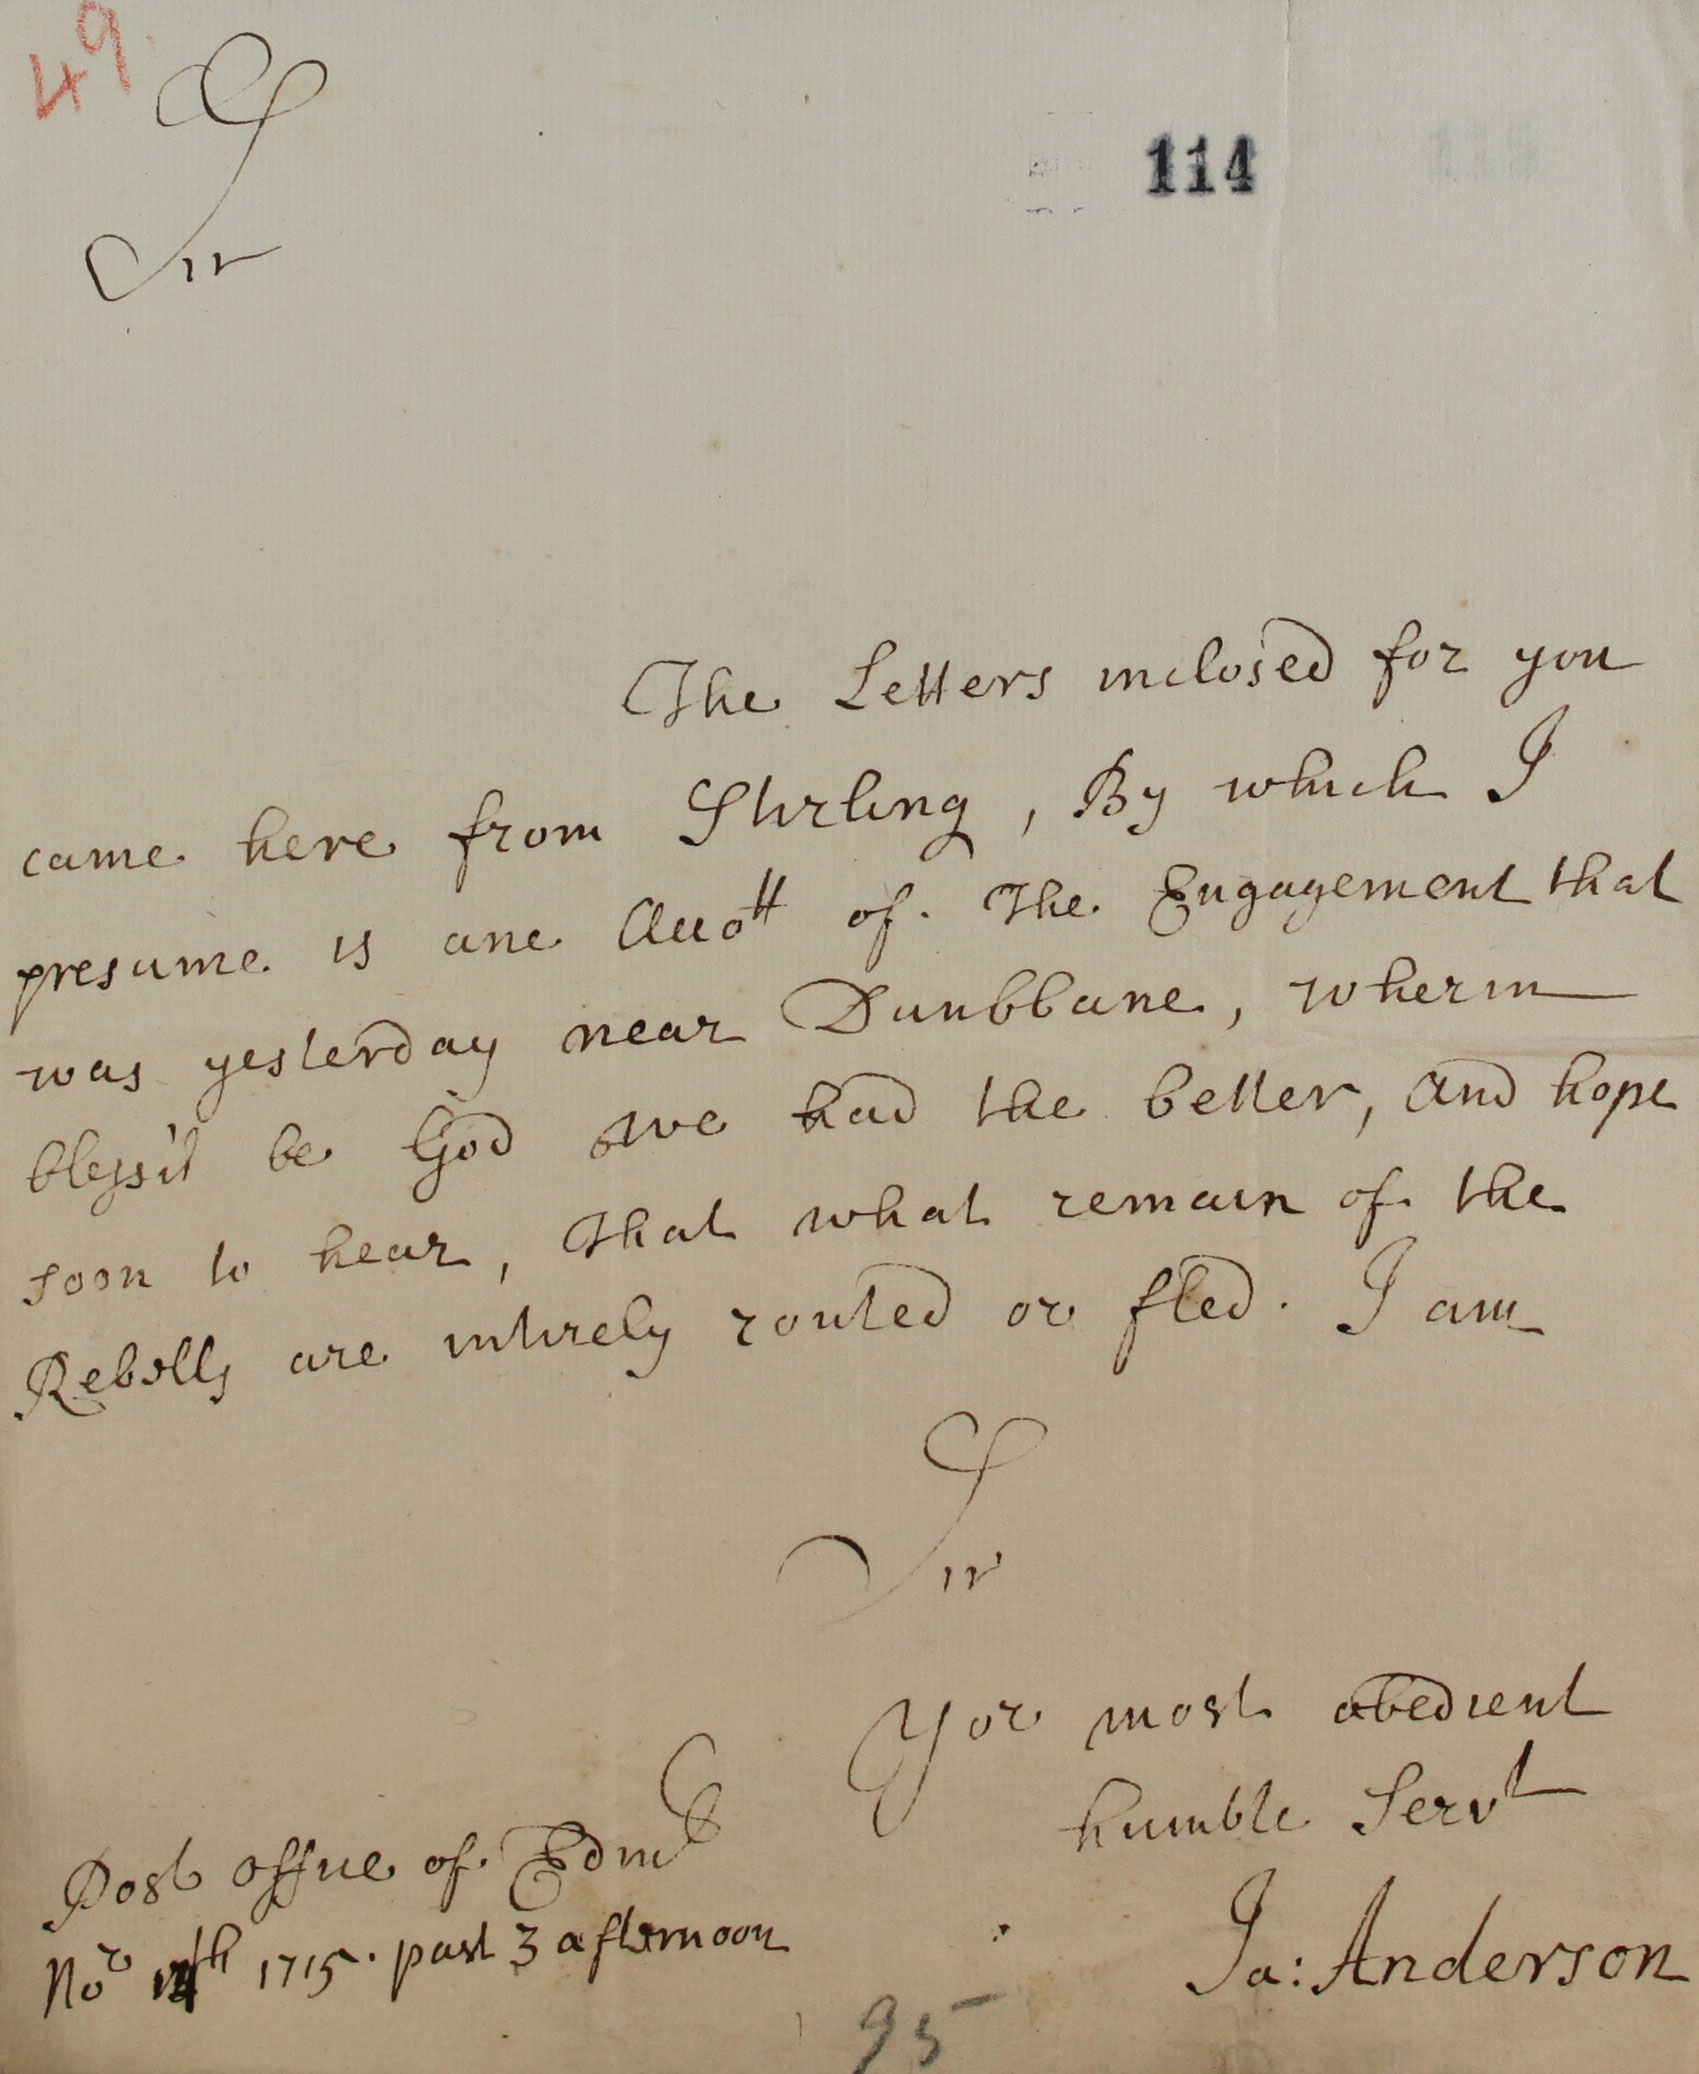 49.
114
115
Sir
The Letters inclosed for you
came here from Stirling, By which I
presume is ane Accott of the Engagement that
was yesterday near Dunbbane, wherin
bless'd be God we had the better, and hope
soon to hear, That what remain of the
Rebells are intirely routed or fled. I am
Sir
Yor most obedient
humble Servt
Ja: Anderson
Post office of Edinr
Nor 14th 1715. past 3 afternoon
95